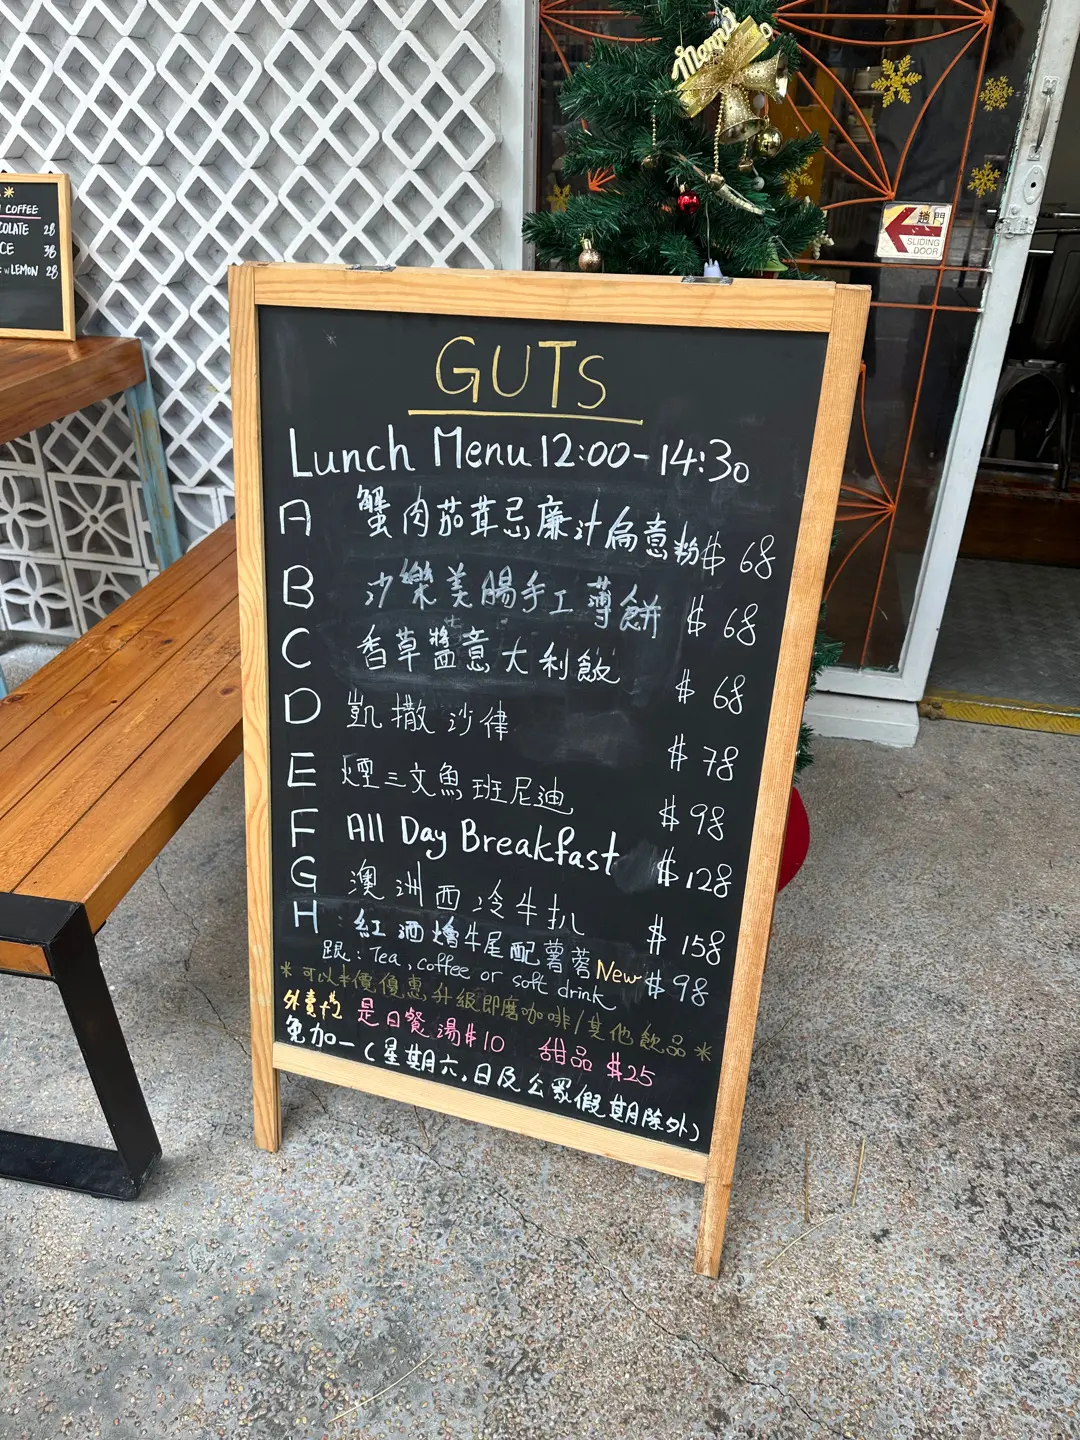 Merry
COFFEE
COLATE 28
CE 38
w LEMON 28
趟門
SLIDING DOOR
GUTS
Lunch Menu 12:00-14:30
A 蟹肉茄茸忌廉汁扁意粉 $68
B 沙樂美腸手工薄餅 $68
C 香草醬意大利飯 $68
D 凱撒沙律 $78
E 煙三文魚班尼迪 $98
F All Day Breakfast $128
G 澳洲西冷牛扒 $158
H 紅酒燴牛尾配薯蓉 New $98
跟: Tea, coffee or soft drink
*可以半價優惠升級即磨咖啡/其他飲品*
外賣+$2 是日餐湯$10 甜品 $25
免加一(星期六,日及公眾假期除外)